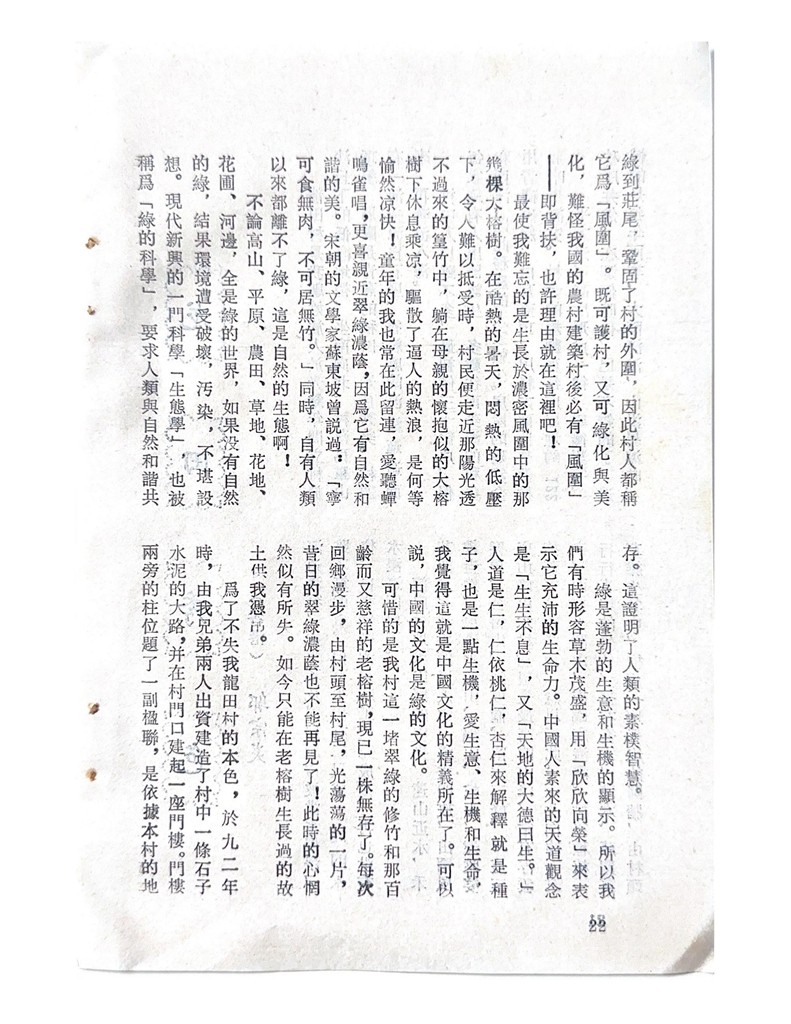 綠到莊尾，鞏固了村的外圍，因此村人都稱
它爲「風圍」。既可護村，又可綠化與美
化，難怪我國的農村建築村後必有「風圍」
——即背扶，也許理由就在這裡吧！
最使我難忘的是生長於濃密風圍中的那
幾棵大榕樹。在酷熱的暑天，悶熱的低壓
下，令人難以抵受時，村民便走近那陽光透
不過來的篁竹中，躺在母親的懷抱似的大榕
樹下休息乘凉，驅散了逼人的熱浪，是何等
愉然凉快！童年的我也常在此留連，愛聽蟬
鳴雀唱，更喜親近翠綠濃蔭，因爲它有自然和
諧的美。宋朝的文學家蘇東坡曾説過：「寧
可食無肉，不可居無竹。」同時，自有人類
以來都離不了綠，這是自然的生態啊！
不論高山、平原、農田、草地、花地、
花圃、河邊，全是綠的世界，如果没有自然
的綠，結果環境遭受破壞，汚染，不堪設
想。現代新興的一門科學「生態學」，也被
稱爲「綠的科學」，要求人類與自然和諧共
存。這證明了人類的素樸智慧。
綠是蓬勃的生意和生機的顯示。所以我
們有時形容草木茂盛，用「欣欣向榮」來表
示它充沛的生命力。中國人素來的天道觀念
是「生生不息」，又「天地的大德曰生。」
人道是仁，仁依桃仁，杏仁來解釋就是種
子，也是一點生機，愛生意、生機和生命，
我覺得這就是中國文化的精義所在了。可以
説，中國的文化是綠的文化。
可惜的是我村這一堵翠綠的修竹和那百
齡而又慈祥的老榕樹，現已一株無存了。每次
回鄉漫步，由村頭至村尾，光蕩蕩的一片，
昔日的翠綠濃蔭也不能再見了！此時的心惘
然似有所失。如今只能在老榕樹生長過的故
土供我憑吊。
爲了不失我龍田村的本色，於九二年
時，由我兄弟兩人出資建造了村中一條石子
水泥的大路，并在村門口建起一座門樓。門樓
兩旁的柱位題了一副楹聯，是依據本村的地
22